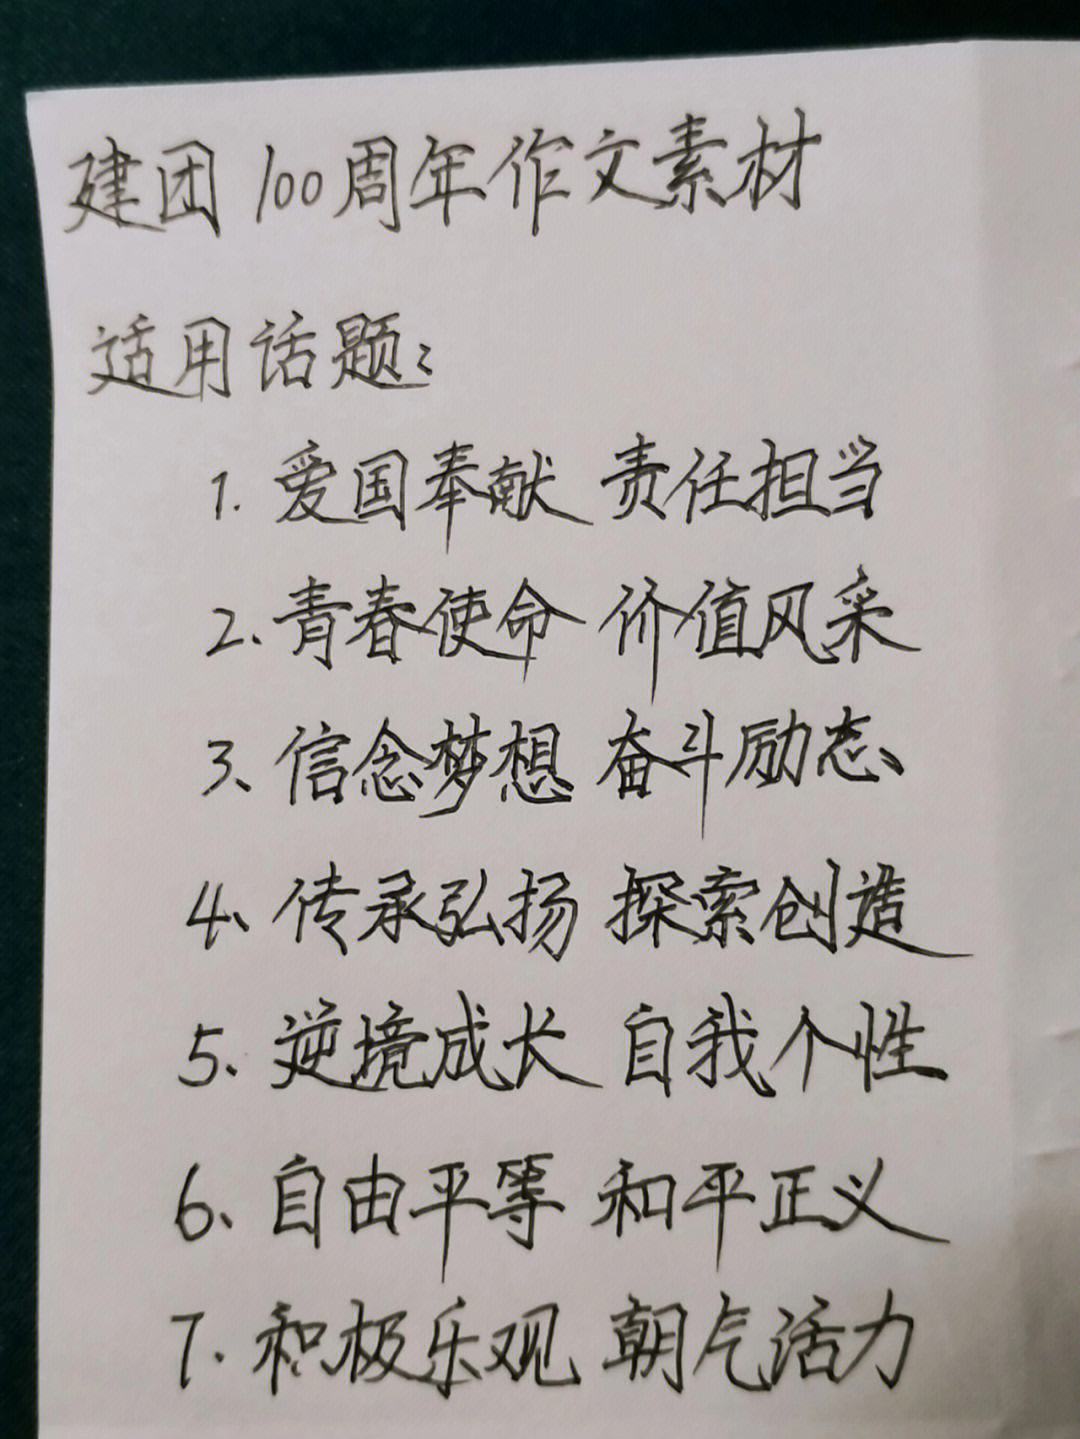 建团100周年作文素材
适用话题:
1. 爱国奉献 责任担当
2. 青春使命 价值风采
3、信念梦想 奋斗励志
4、传承弘扬 探索创造
5、逆境成长 自我个性
6、自由平等 和平正义
7. 积极乐观 朝气活力